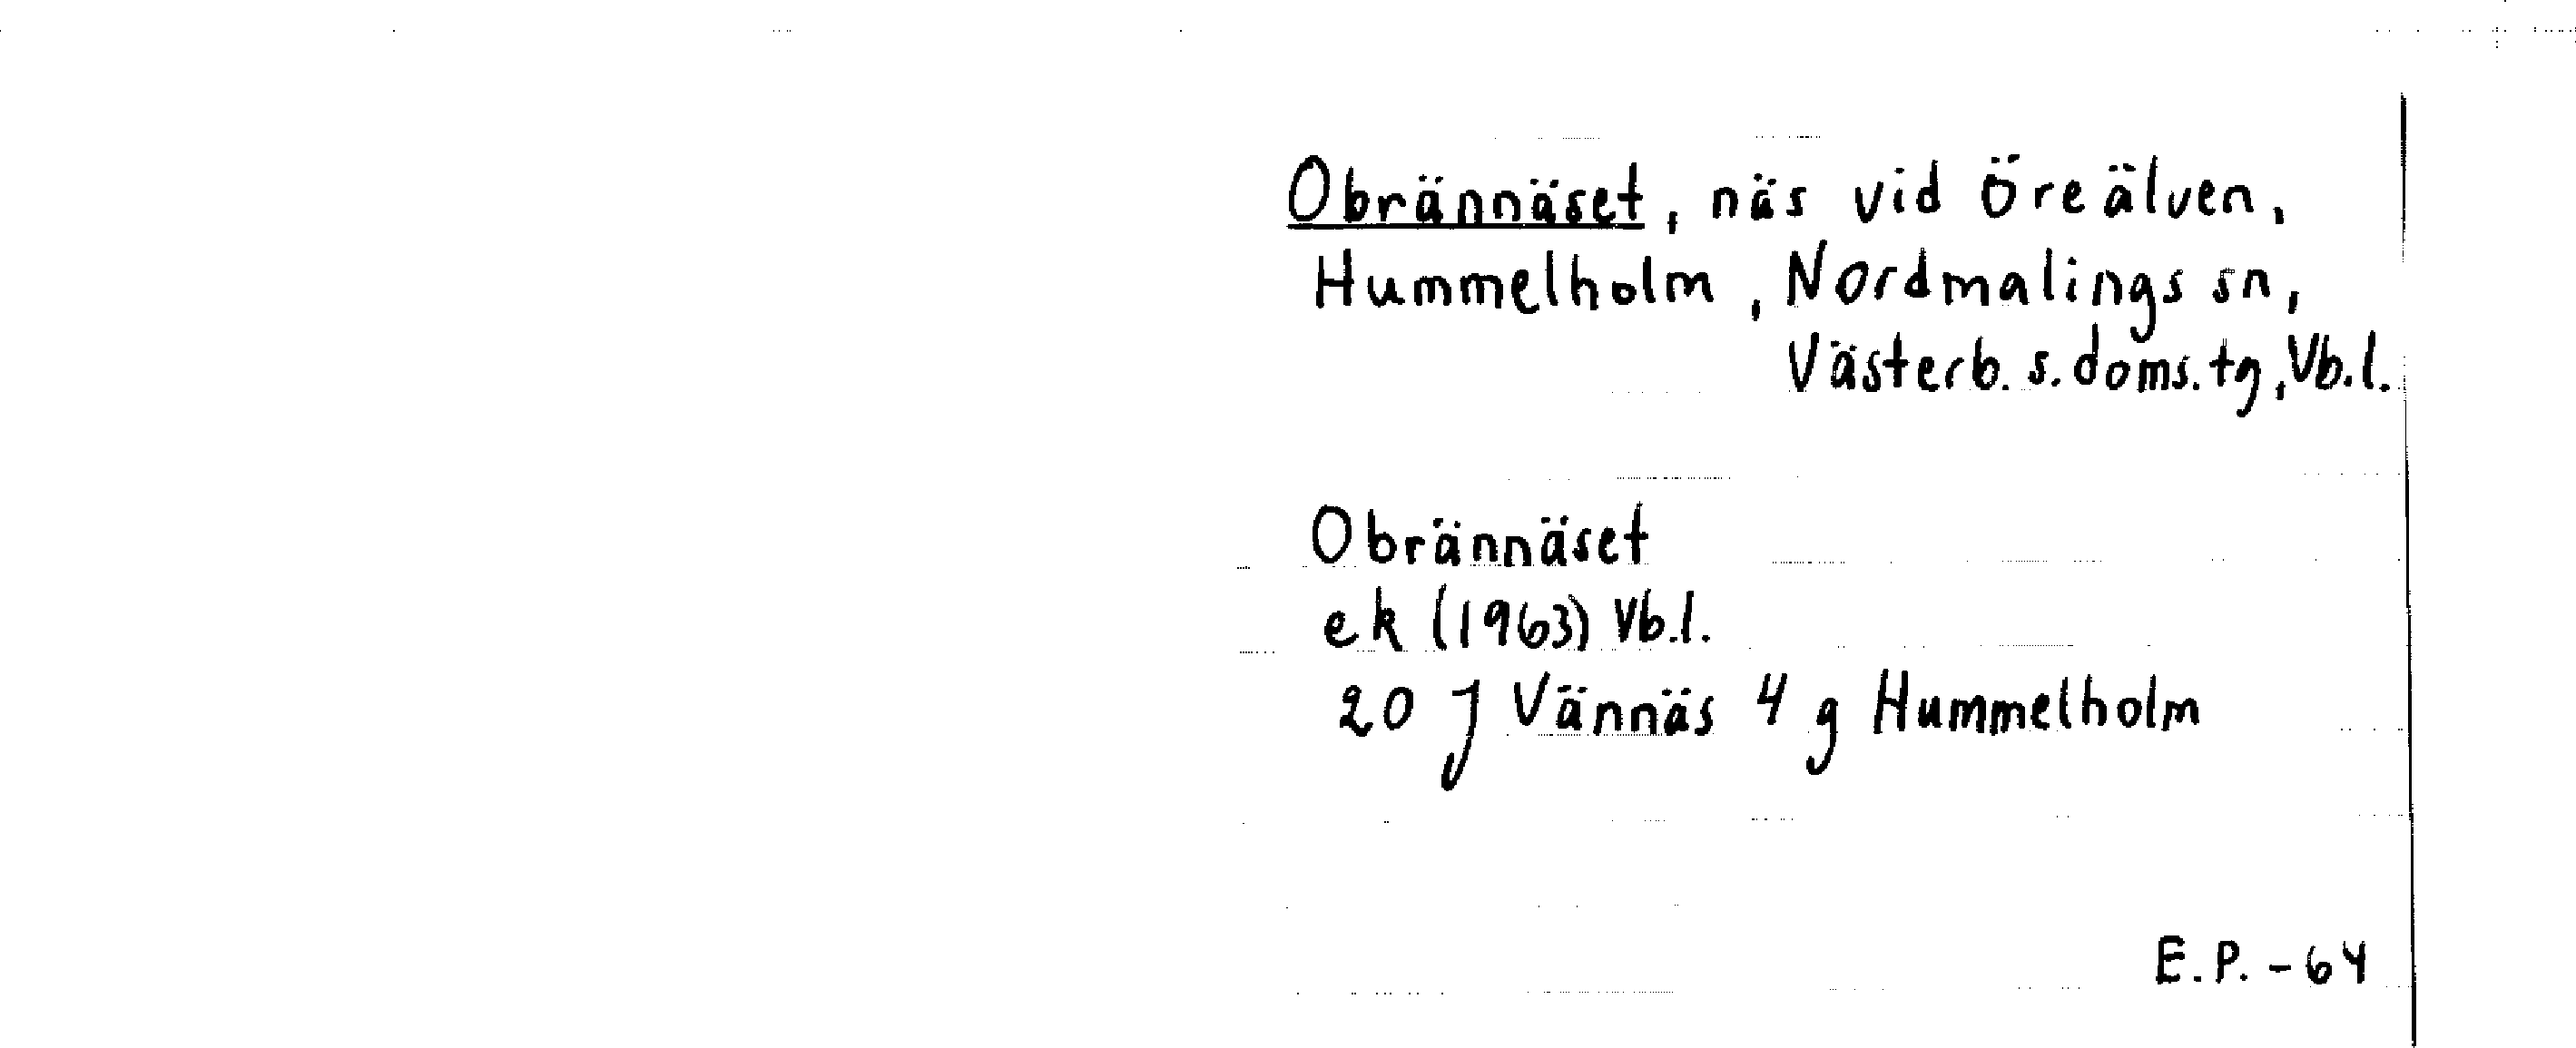 Obrännäset, näs vid Öreälven,
Hummelholm, Nordmalings sn,
Västerb. s. doms. tg, Vb.l.
Obrännäset
ek (1963) Vb.l.
20 J Vännäs 4 g Hummelholm
E.P. - 64